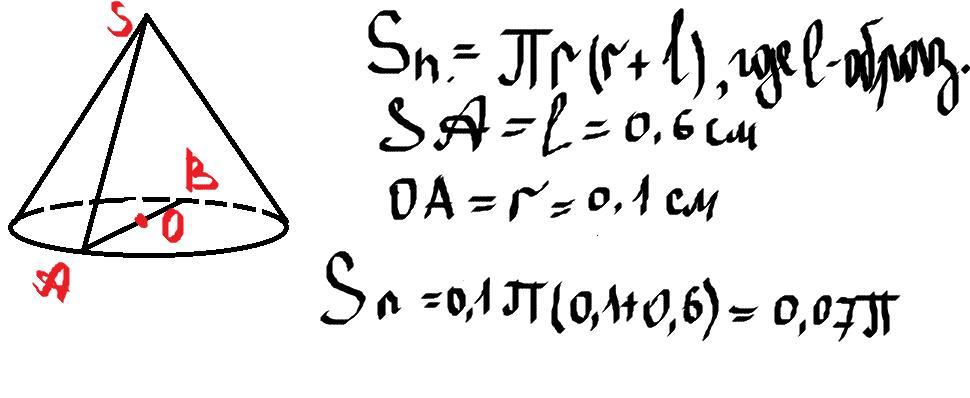 S
B
O
A
Sп. = πr(r+l), где l-образ.
SA = l = 0.6 см
OA = r = 0.1 см
Sп = 0,1π(0,1+0,6) = 0,07π